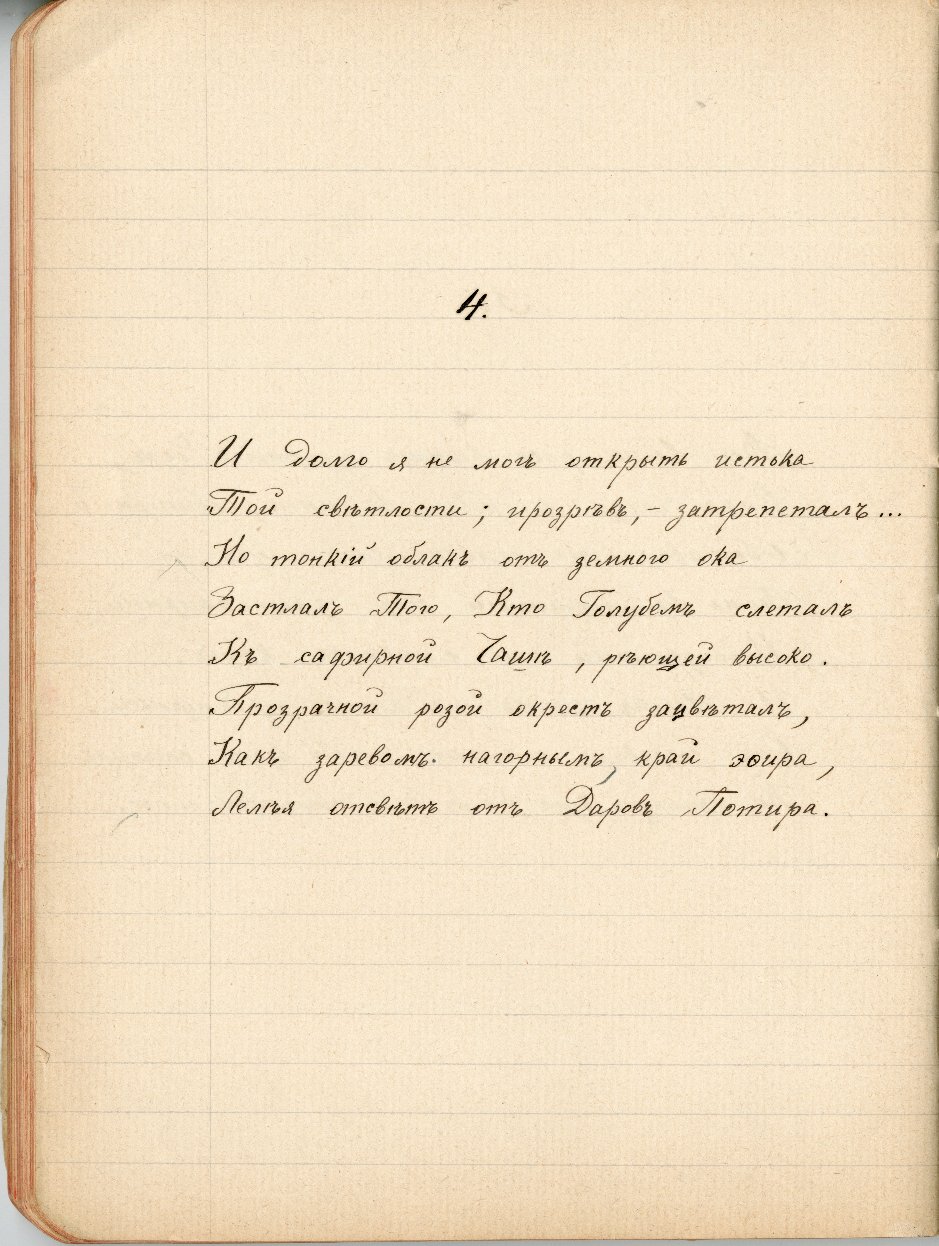 4.
И долго я не могъ открыть истока
Той свѣтлости; прозрѣвъ, – затрепеталъ...
Но тонкій облакъ отъ земного ока
Застлалъ Того, Кто Голубемъ слеталъ
Къ сафирной Чашѣ, рѣющей высоко.
Прозрачной розой окрестъ зацвѣталъ,
Какъ заревомъ нагорнымъ, край эѳира,
Лелѣя отсвѣтъ отъ Даровъ Потира.